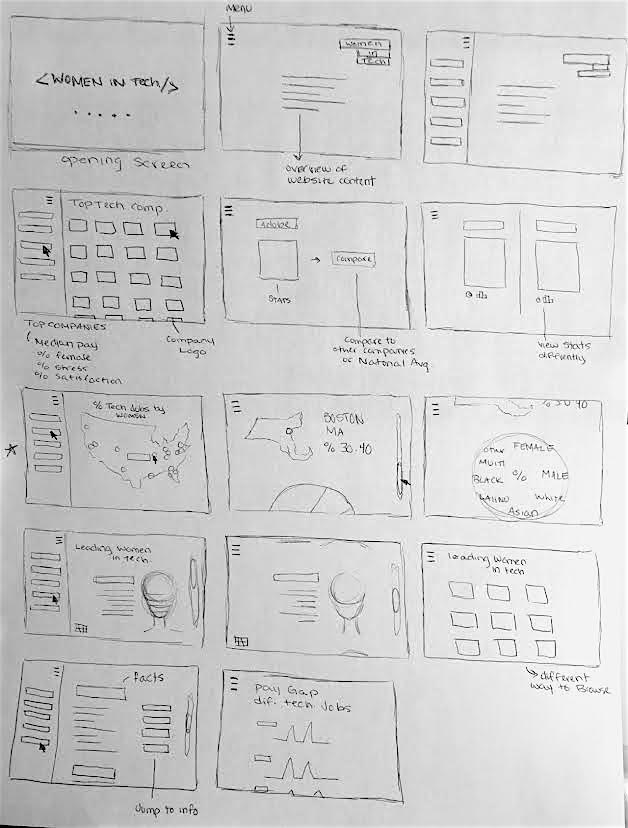 Menu
<WOMEN IN Tech/>
. . . . .
opening screen
Women
in
Tech
overview of
website content
TOPTech Comp.
TOP COMPANIES
Median pay
% female
% stress
% satisfaction
Company
Logo
Adobe
Compare
STATS
Compare to
other companies
or National Avg.
View Stats
differently
% Tech Jobs by
WOMEN
BOSTON
MA
% 30.40
% 30 40
other
FEMALE
MULTI
BLACK
%
MALE
LATINO
White
Asian
Leading Women
in tech
Leading Women
in tech
different
way to Browse
facts
Jump to info
Pay Gap
dif. tech Jobs